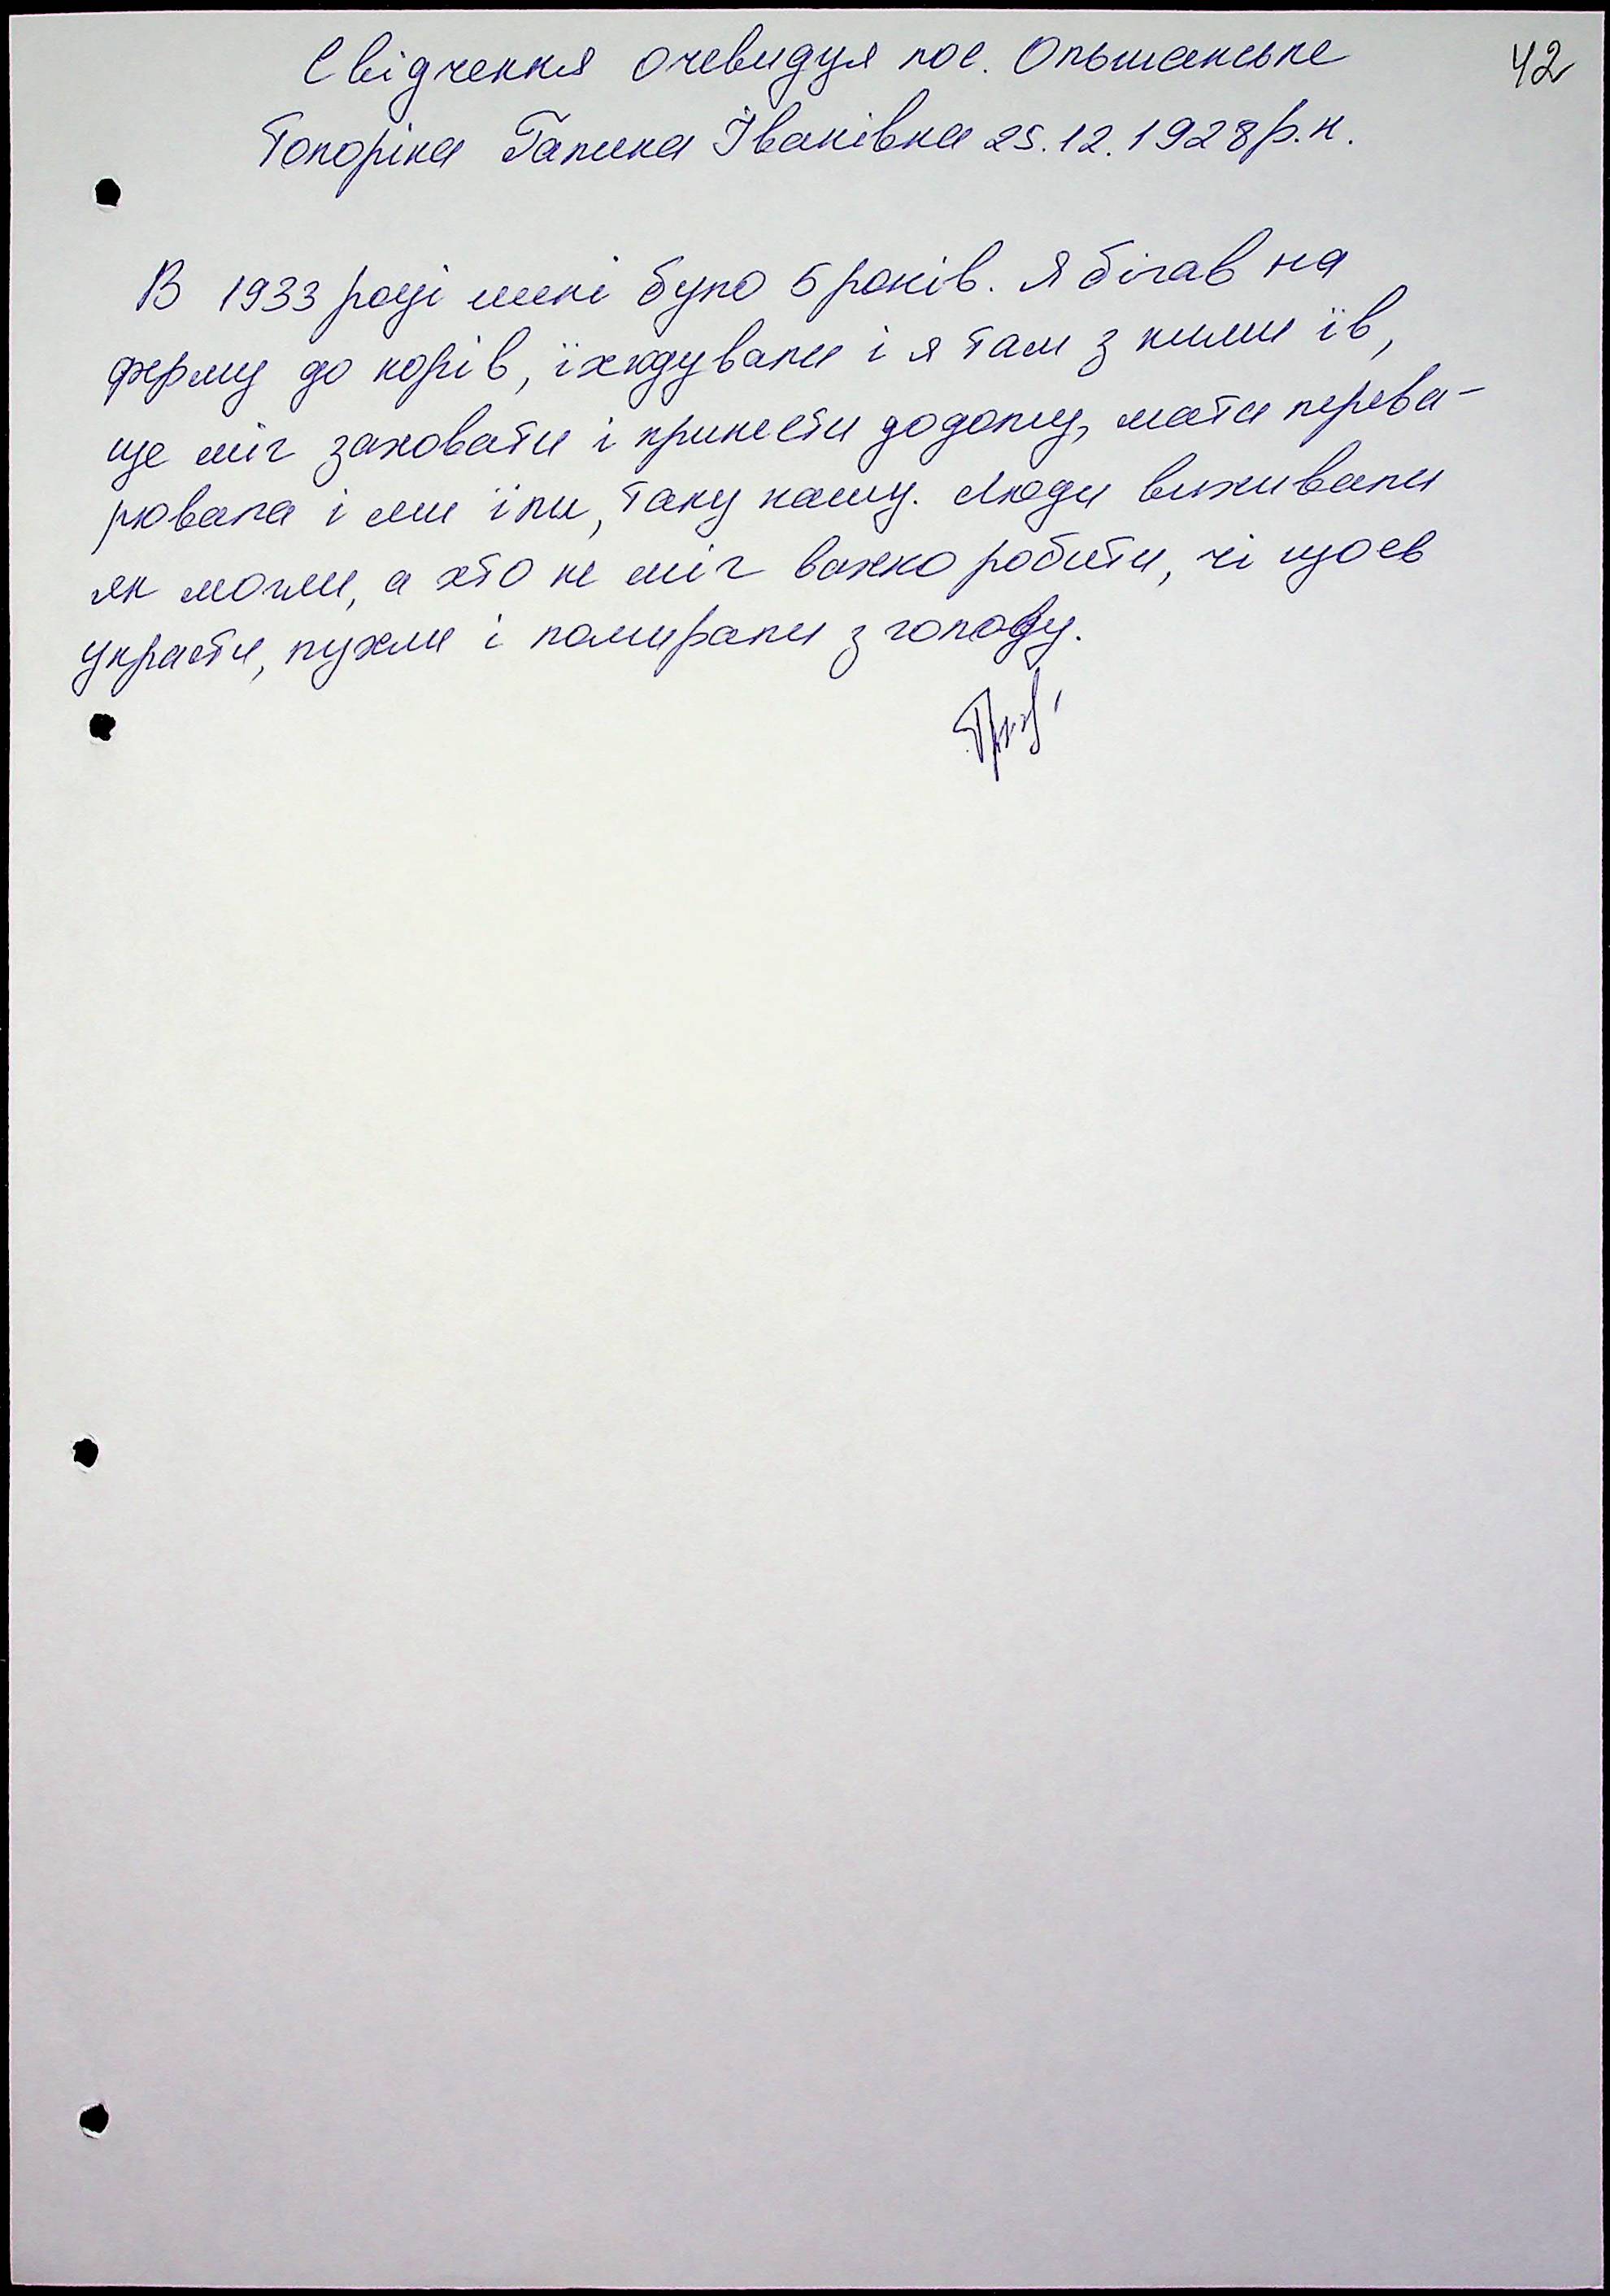 42
Свідчення очевидця пос. Ольшанське
Топоріна Галина Іванівна 25.12.1928 р.н.
В 1933 році мені було 5 років. Я бігав на
ферму до корів, їх годували і я там з ними їв,
ще міг заховати і принести додому, мати перева-
рювала і ми їли, таку кашу. Люди виживали
як могли, а хто не міг важко робити, чі щоєв
украсти, пухли і помирали з голоду.